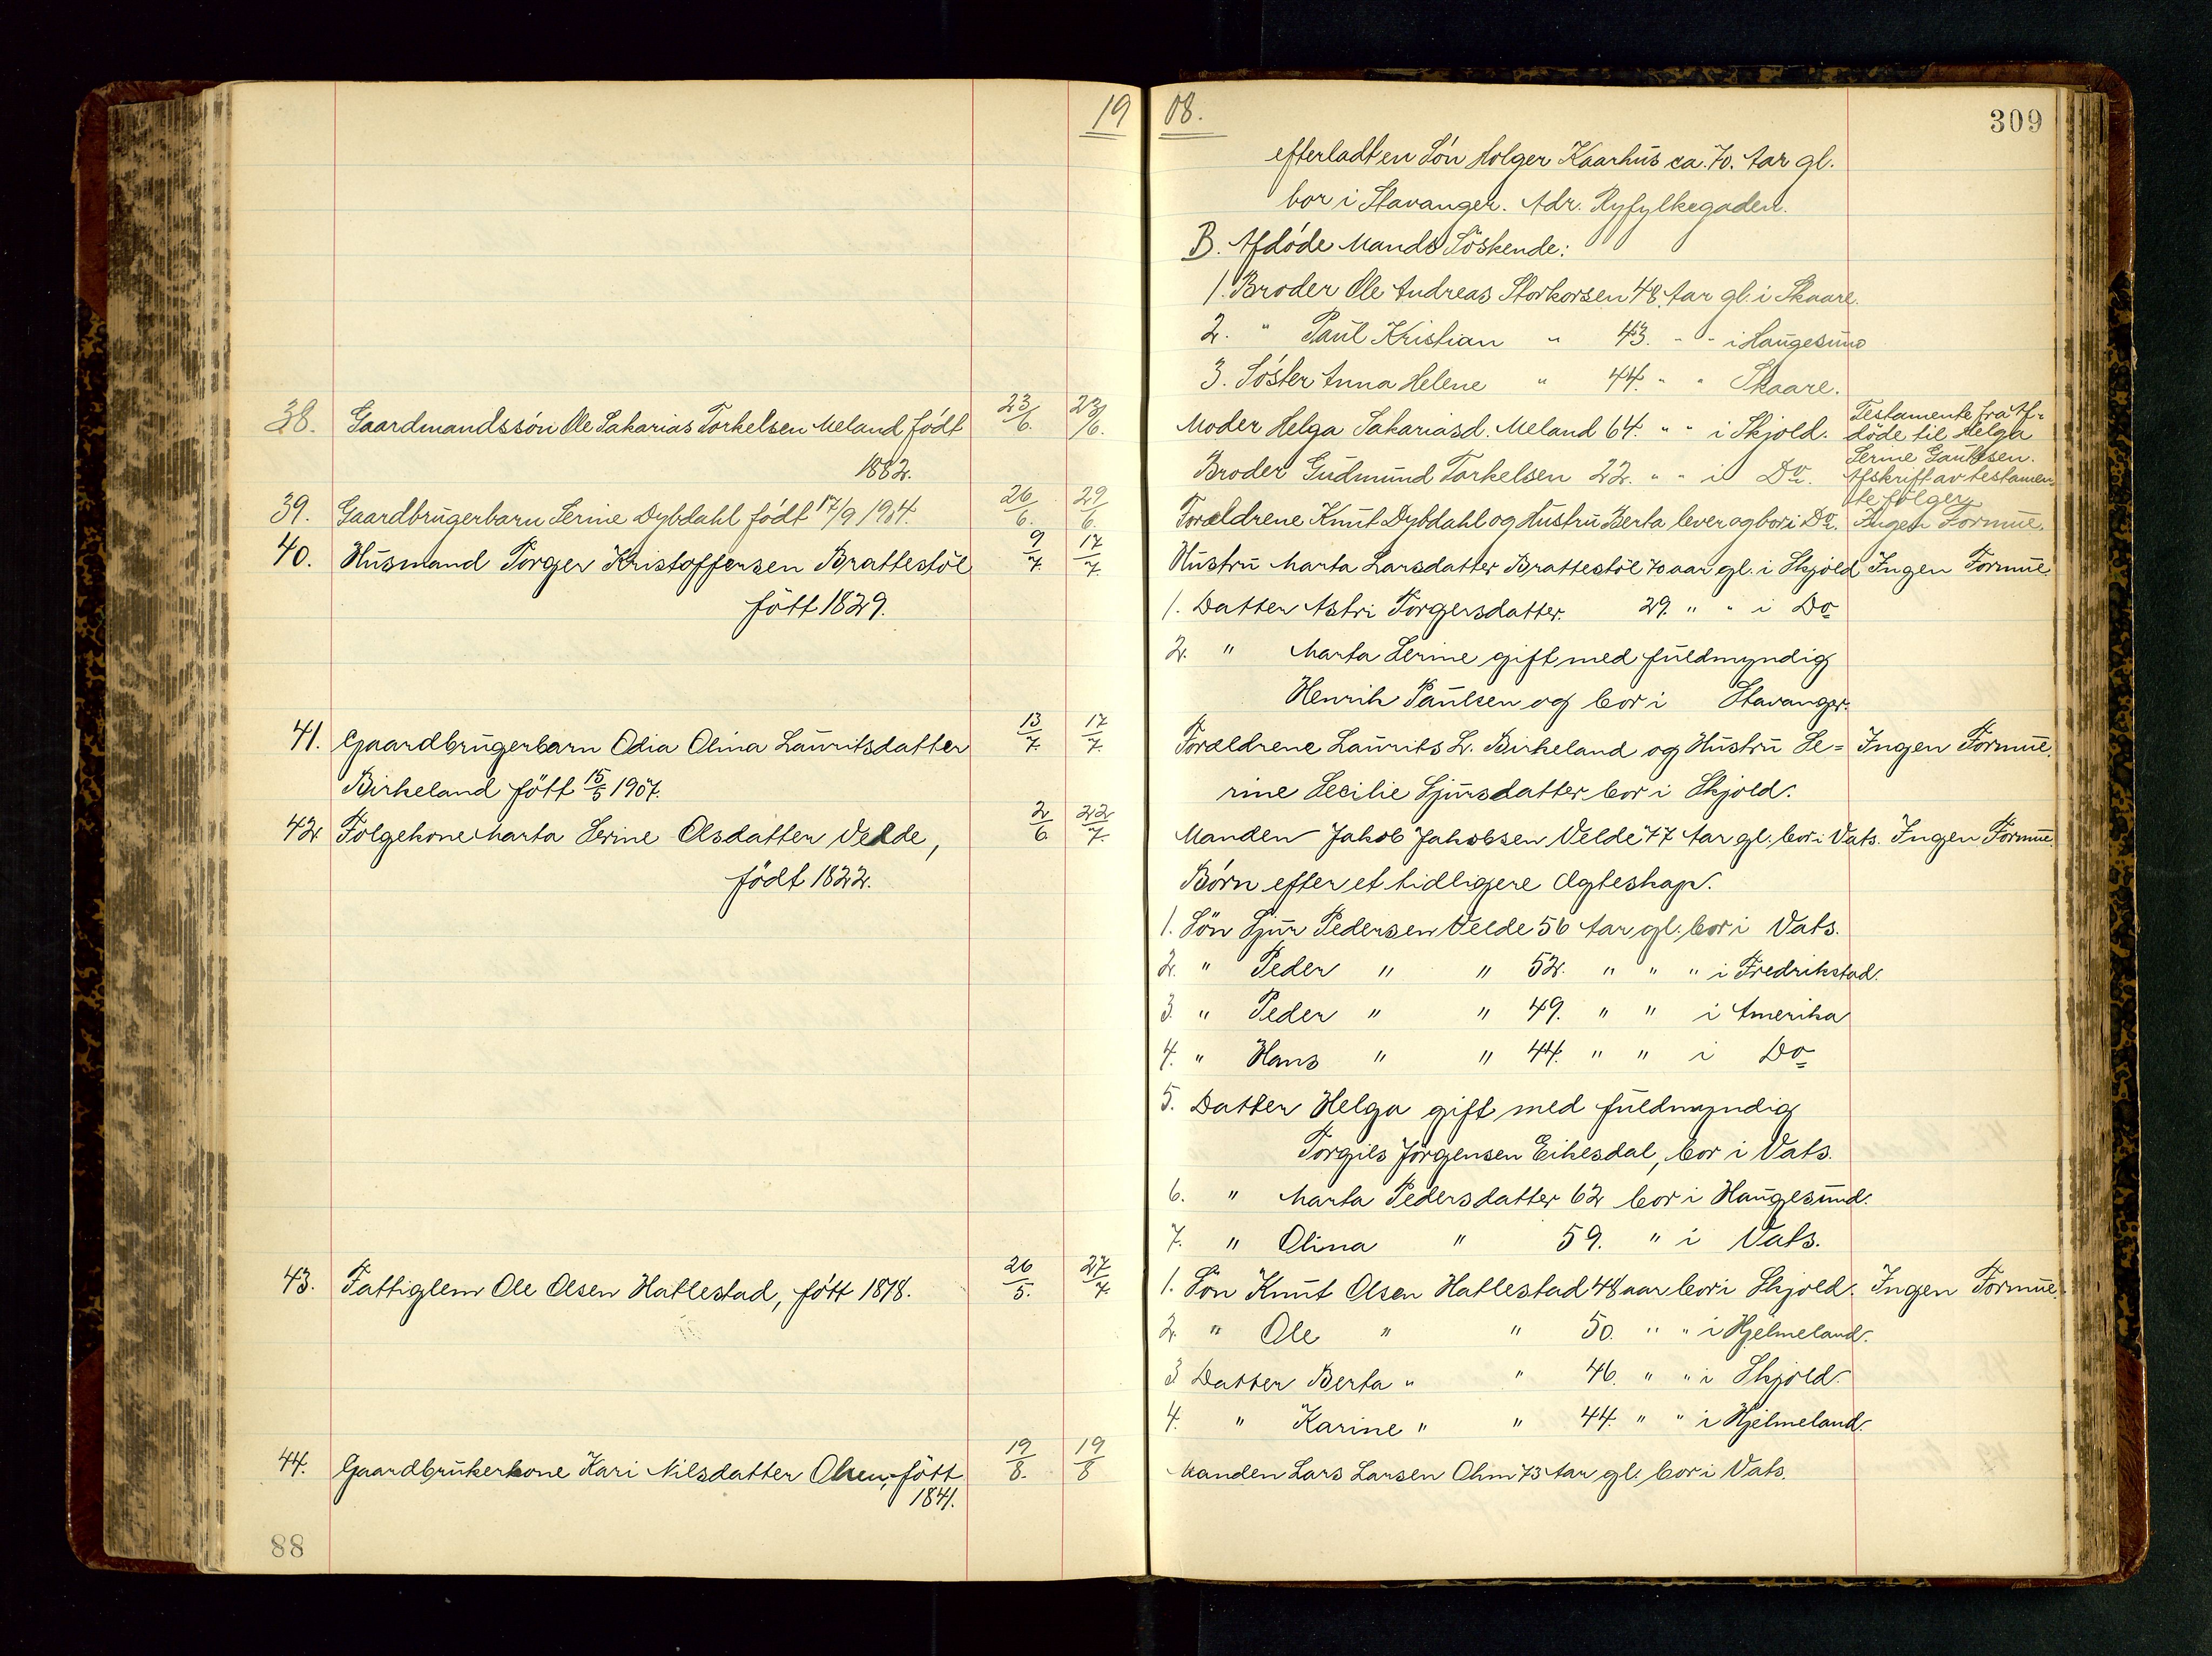 19 08.
309
efterladt en Søn Holger Kaarhus ca. 70. Aar gl.
bor i Stavanger. Adr. Ryfylkegaden.
B. Afdøde Mands Søskende:
1. Broder Ole Andreas Storkorsen 48. Aar gl. i Skaare.
2. " Paul Kristian " 43. " " i Haugesund
3. Søster Anna Helene " 44. " " Skaare.
38. Gaardmandssøn Ole Sakarias Torkelsen Meland født 23/6. 23/6. Moder Helga Sakariasd. Meland 64. " " i Skjold. Testamente fra Af-
døde til Helga
1882. Broder Gudmund Torkelsen 22. " " i Do. Serine Gautesen.
Afskrift av testamen
te følger
39. Gaardbrugerbarn Serine Dybdahl født 17/9 1904. 26/6. 29/6. Forældrene Knut Dybdahl og Hustru Berta lever og bor i Do. Ingen Formue.
40. Husmand Torger Kristoffersen Brattestöl 9/7. 17/7. Hustru Marta Larsdatter Brattestöl 70 aar gl. i Skjold Ingen Formue.
födt 1829. 1. Datter Astri Torgersdatter. 29. " " i Do
2. " Marta Serine gift med fuldmyndig
Henrik Paulsen og bor i Stavanger.
41. Gaardbrugerbarn Odia Olina Lauritsdatter 13/7. 17/7. Forældrene Laurits L. Birkeland og Hustru Se= Ingen Formue.
Birkeland födt 15/5 1907. rine Secilie Sjursdatter bor i Skjold.
42 Folgekone Marta Serine Olsdatter Velde, 2/6 22/7. Manden Jakob Jakobsen Velde 77 Aar gl. bor i Vats. Ingen Formue.
födt 1822. Børn efter et tidligere Ægteskap.
1. Søn Sjur Pedersen Velde 56 Aar gl. bor i Vats.
2. " Peder " " 52. " " " i Fredrikstad.
3. " Peder " " 49. " " i Amerika
4. " Hans " " 44. " " i Do
5. Datter Helga gift med fuldmyndig
Torgils Jørgensen Eikesdal, bor i Vats.
6. " Marta Pedersdatter 62 bor i Haugesund.
7. " Olina " 59. " i Vats.
43. Fattiglem Ole Olsen Hatlestad, födt 1818. 26/5. 27/7. 1. Søn Knut Olsen Hatlestad 48 aar bor i Skjold. Ingen Formue.
2. " Ole " " 50. " " i Hjelmeland.
3 Datter Berta " " 46. " " i Skjold.
4. " Karine " " 44. " " i Hjelmeland.
44. Gaardbrukerkone Kari Nilsdatter Ohm, födt 19/8. 19/8 Manden Lars Larsen Ohm 73 Aar gl. bor i Vats.
1841.
88